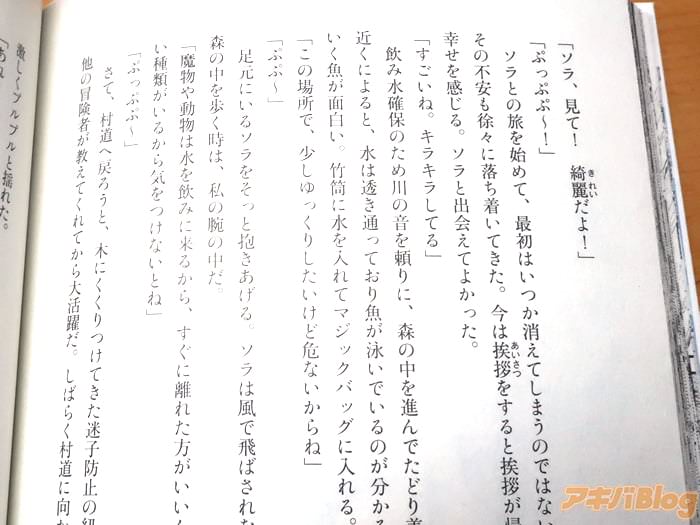 「ソラ、見て！　綺麗だよ！」
「ぷっぷぷ～！」
ソラとの旅を始めて、最初はいつか消えてしまうのではない
その不安も徐々に落ち着いてきた。今は挨拶をすると挨拶が
幸せを感じる。ソラと出会えてよかった。
「すごいね。キラキラしてる」
飲み水確保のため川の音を頼りに、森の中を進んでたどり着
近くによると、水は透き通っており魚が泳いでいるのが分かる
いく魚が面白い。竹筒に水を入れてマジックバッグに入れる。
「この場所で、少しゆっくりしたいけど危ないからね」
「ぷぷ～」
足元にいるソラをそっと抱きあげる。ソラは風で飛ばされな
森の中を歩く時は、私の腕の中だ。
「魔物や動物は水を飲みに来るから、すぐに離れた方がいいん
い種類がいるから気をつけないとね」
「ぷっぷぷ～」
さて、村道へ戻ろうと、木にくくりつけてきた迷子防止の紐
他の冒険者が教えてくれてから大活躍だ。しばらく村道に向か
激しくプルプルと揺れた。
アキバBlog